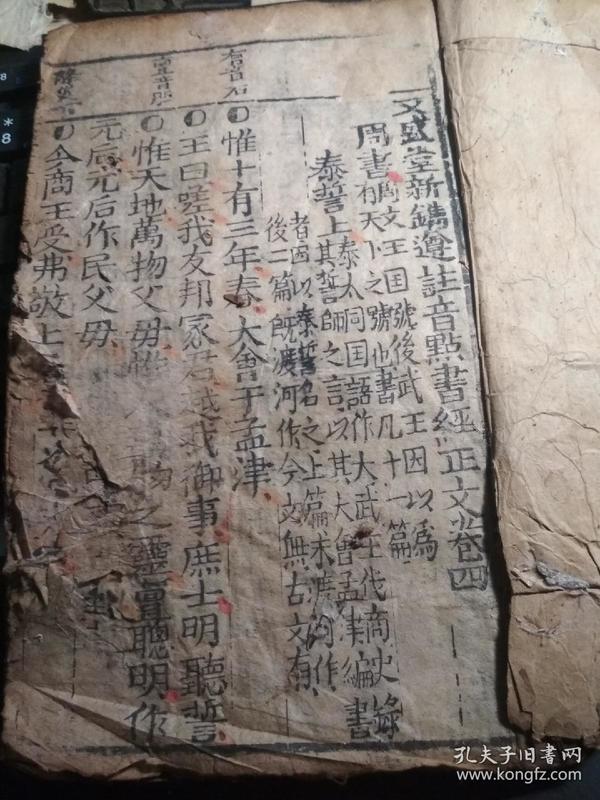 文盛堂新鐫遵註音點書經正文卷四
周書周文王国號後武王因以爲
有天下之號也書凡十一篇
泰誓上泰太同国語作大武王伐商史錄
其誓師之言以其大會孟津編書
者因以泰誓名之上篇未渡河作
後二篇既渡河作今文無古文有
惟十有三年春大會于孟津
王曰嗟我友邦冢君越我御事庶士明聽誓
惟天地萬物父母惟人萬物之靈亶聰明作
元后元后作民父母
今商王受弗敬上天
孔夫子旧书网
www.kongfz.com